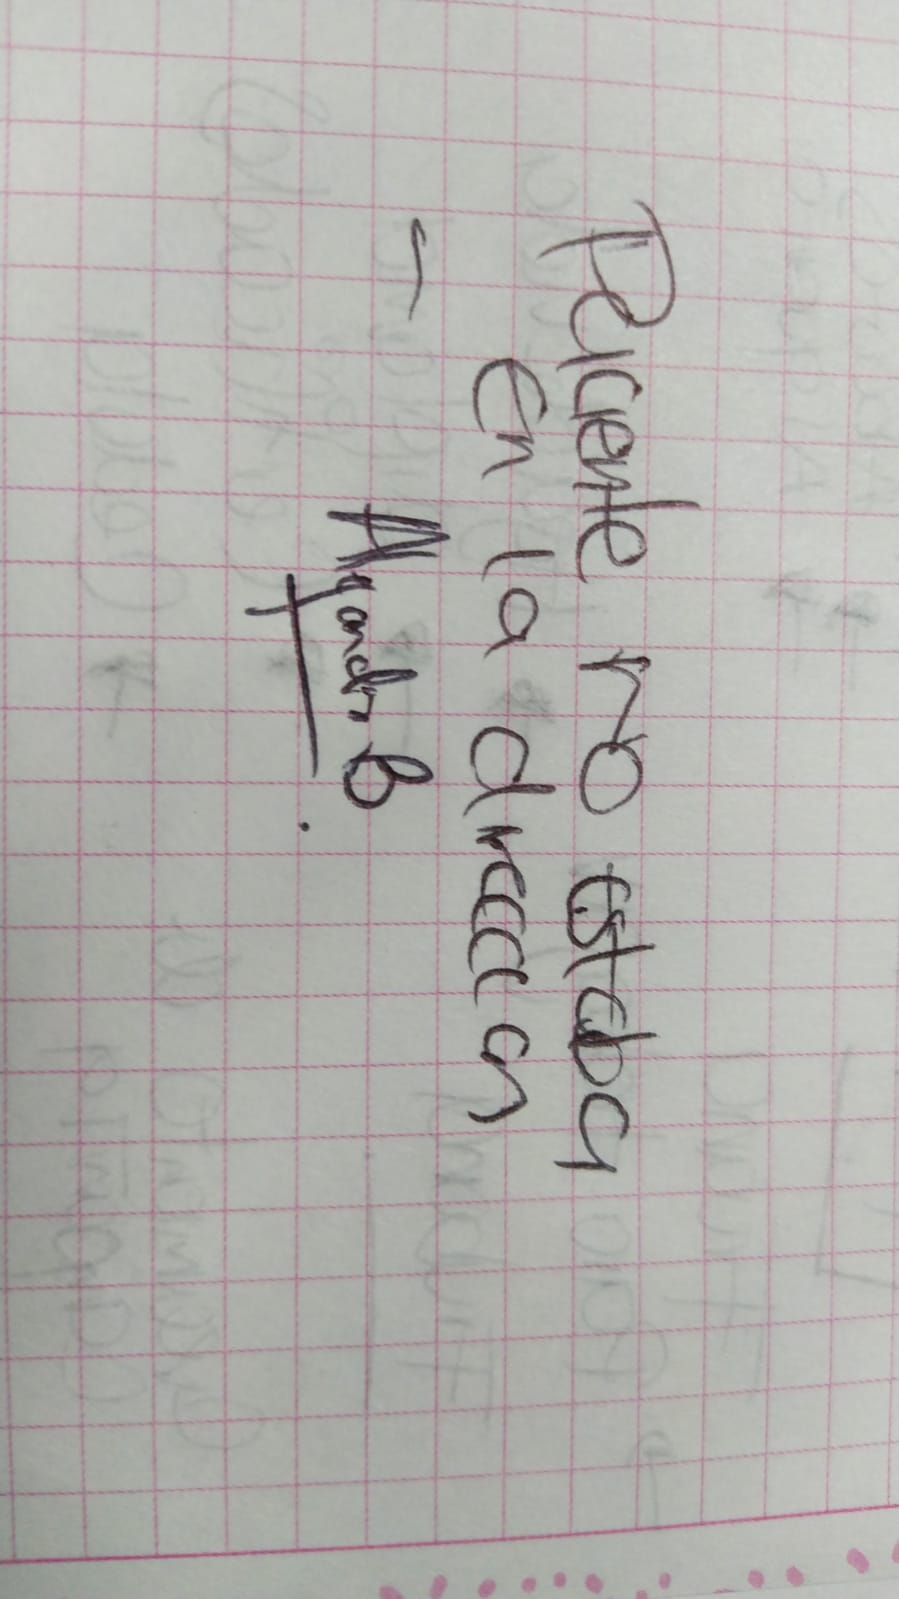 Paciente no estaba
En la dirección
- Alejandro B.